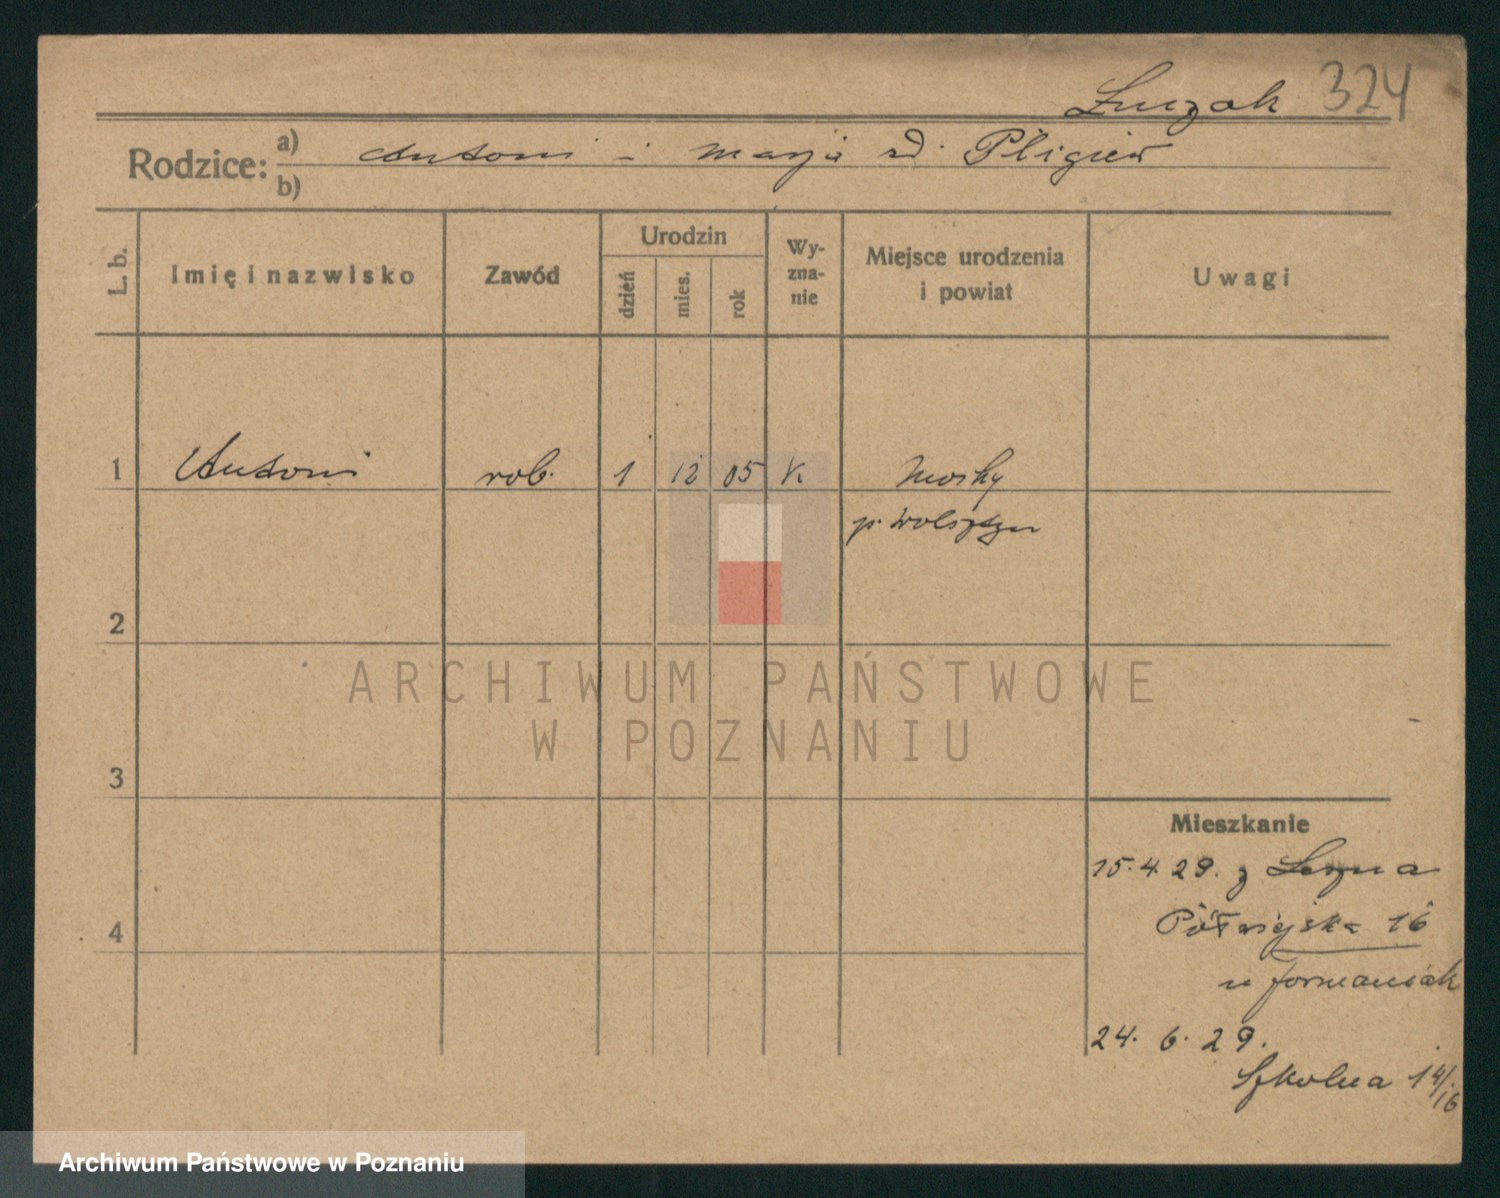 Łuczak 324
Rodzice: a) Antoni i Marja zd. Pligiew
b)
L. b.
Imię i nazwisko
Zawód
Urodzin
dzień
mies.
rok
Wy-
zna-
nie
Miejsce urodzenia
i powiat
Uwagi
1 Antoni rob. 1 12 05 K Mochy
p. Wolsztyn
2
3
4
ARCHIWUM PAŃSTWOWE
W POZNANIU
Mieszkanie
15.4.29. z Leszna
Półwiejska 16
u
24. 6. 29.
Szkolna 14/16
Archiwum Państwowe w Poznaniu